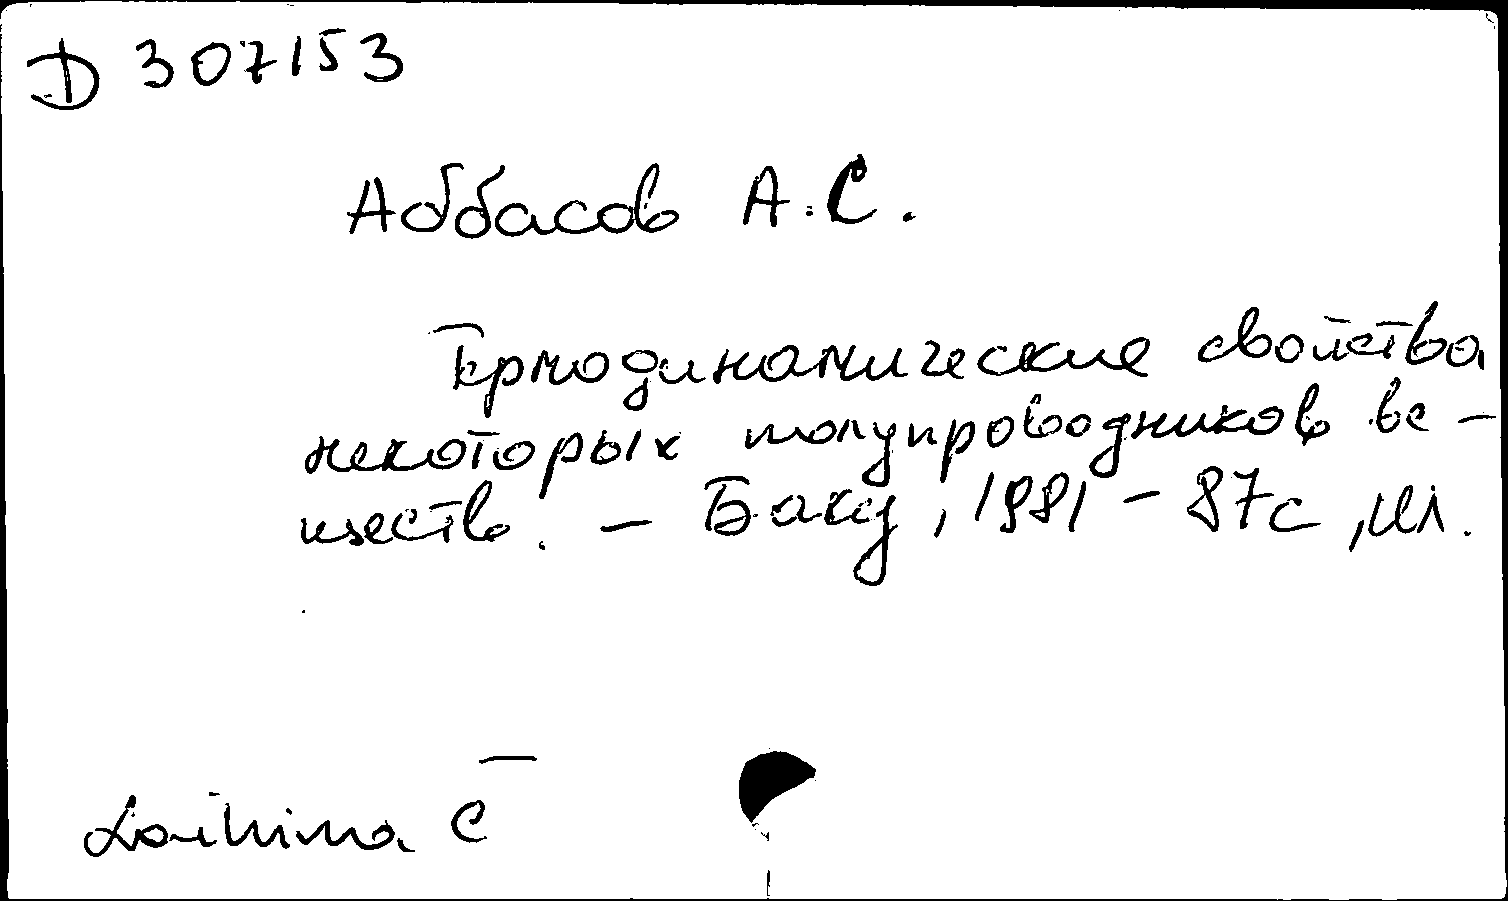 D 307153
Аббасов А.С.
Термодинамические свойства
некоторых полупроводников ве-
ществ. - Баку, 1981 - 87с, ил.